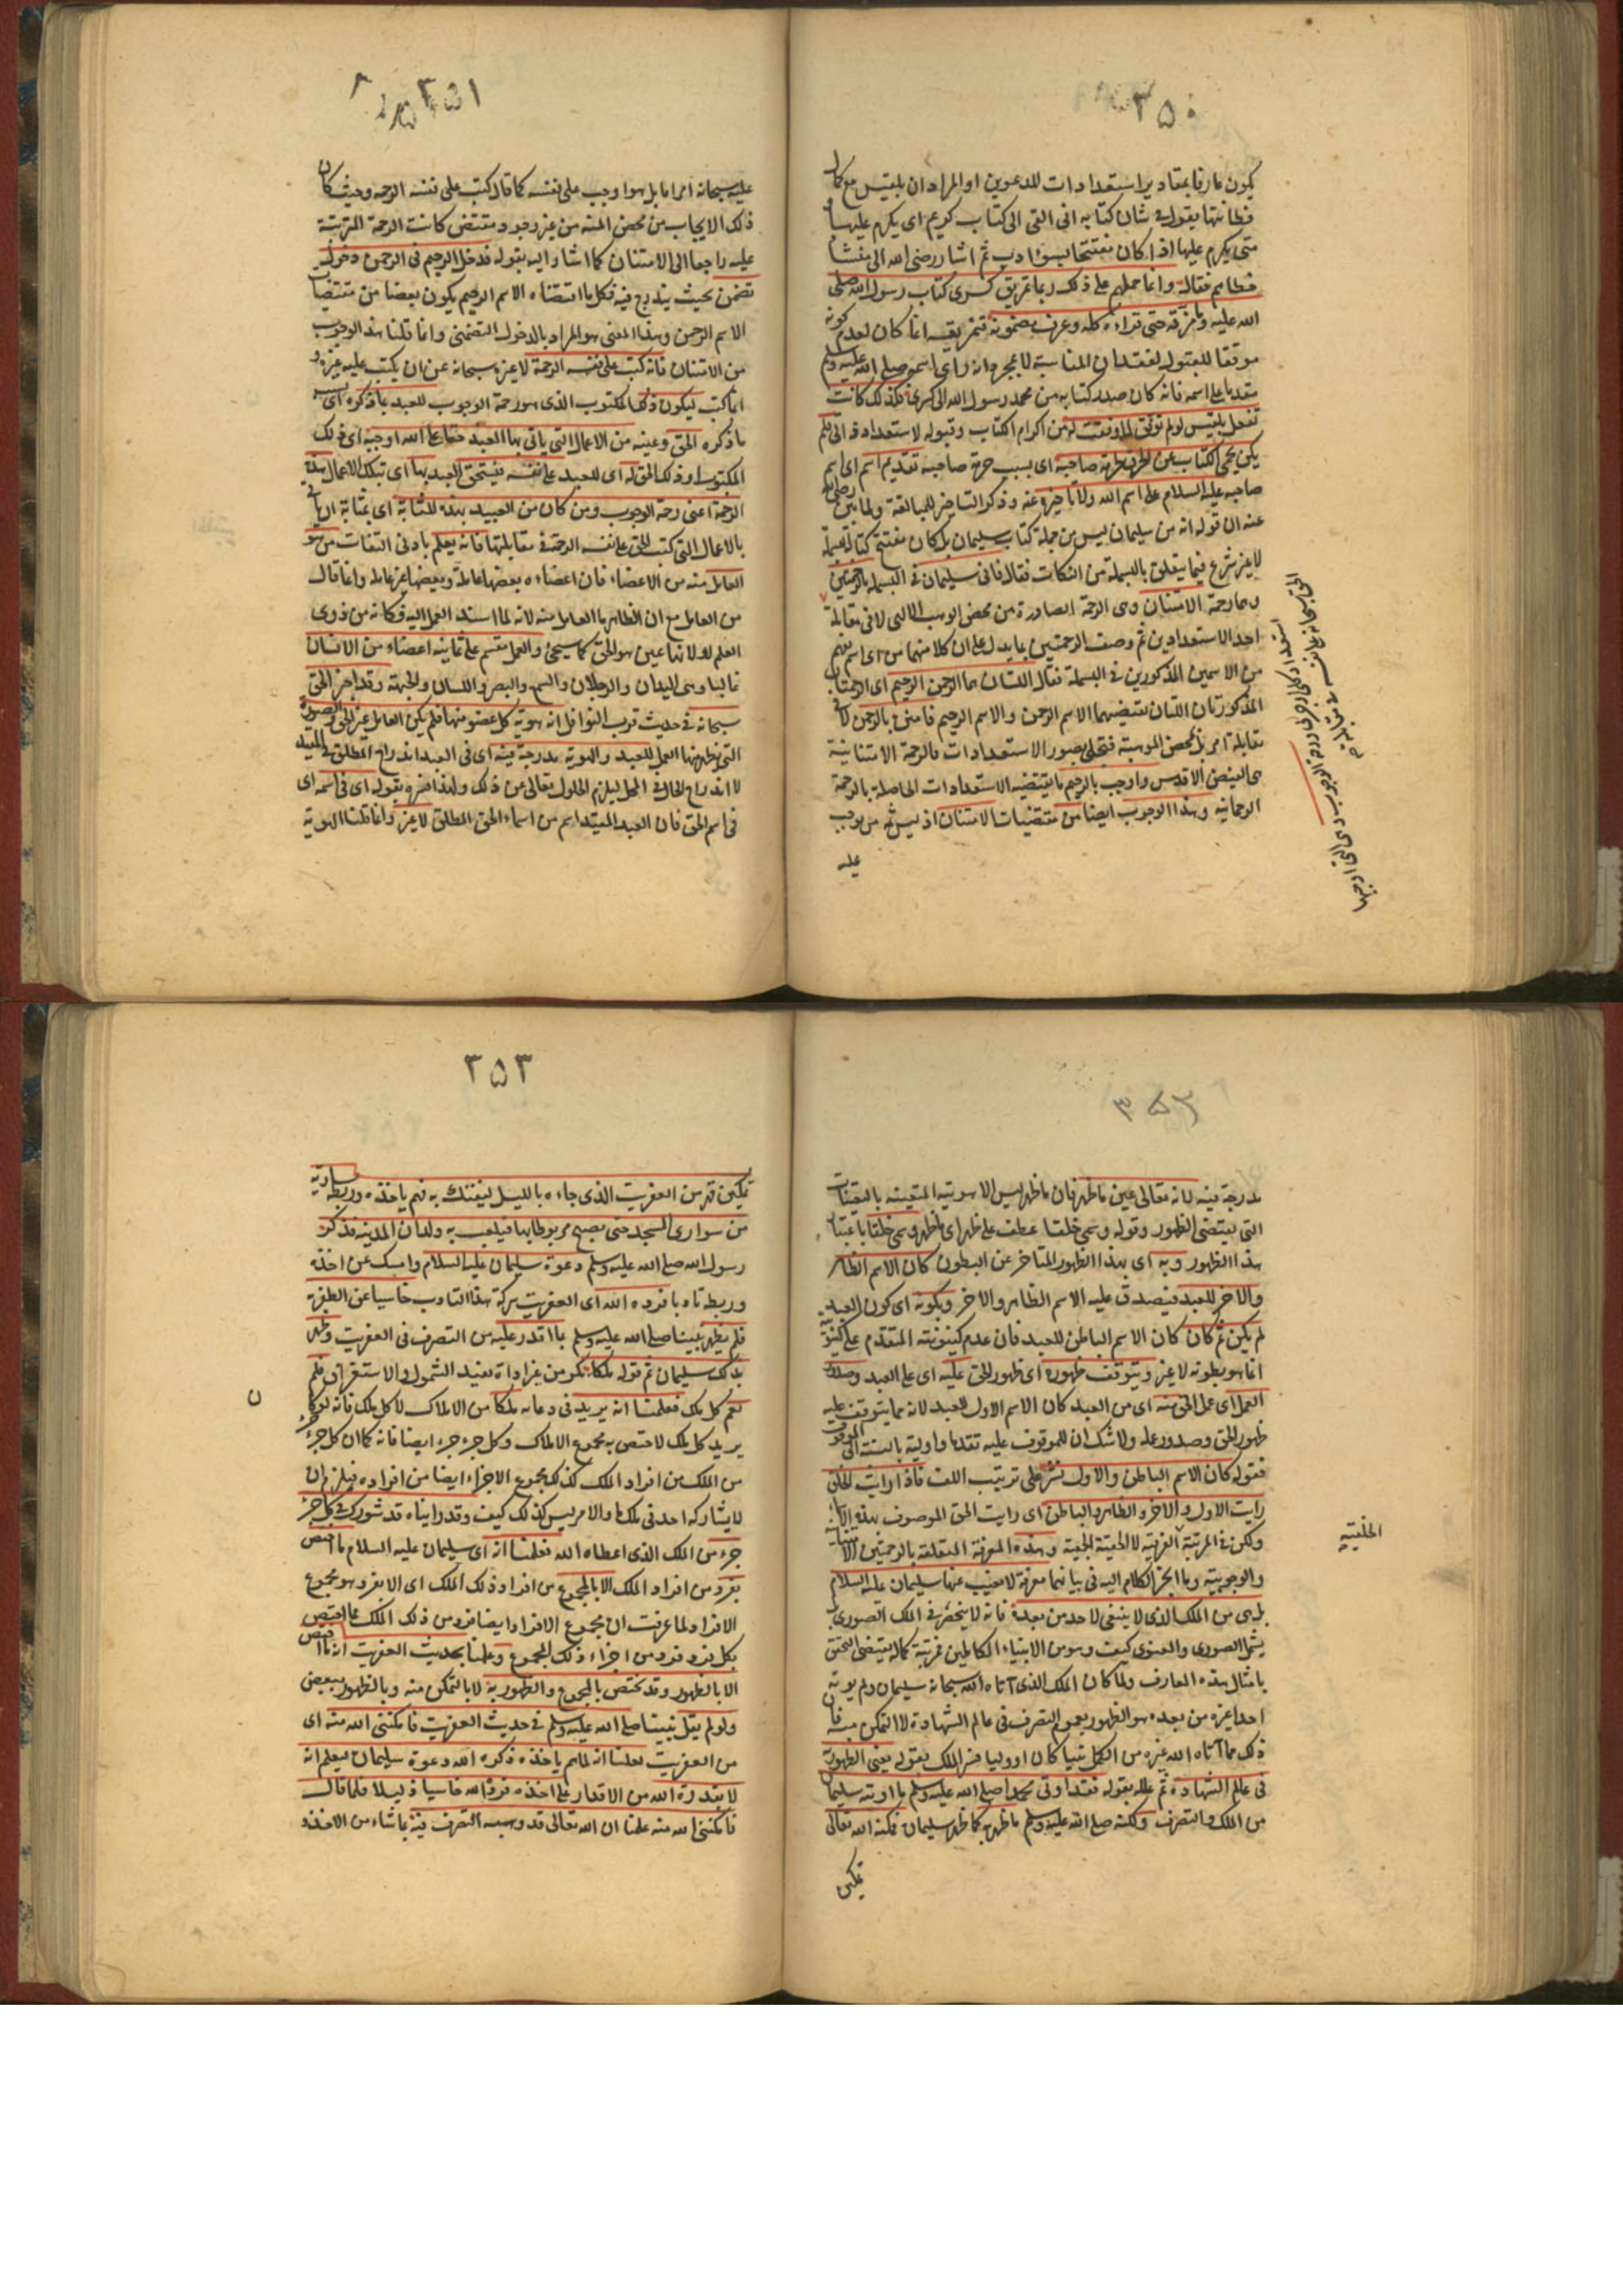 ٢٥٠
يكون عارفا بمقادير استعدادات المدعوين او المراد ان بلقيس مع كمال
فطانتها يقول في شان كتابه انى القى الى كتاب كريم اى يكرم عليها و
متى يكرم عليها اذا كان مفتتحا بسوء ادب ثم اشار رضى الله الى منشأ
خطائهم فقال وانما حملهم على ذلك ربما تمزيق كسرى كتاب رسول الله صلى
الله عليه وما مزقه حتى قراءه كله وعرف مضمونه فتمزيقه انما كان لعدم كونه
موفقا للقبول لفقدان المناسبة لا بمجرد انه راى اسمه صلى الله عليه وسلم
مقدما على اسمه فانه كان صدر كتابه من محمد رسول الله الى كسرى فكذلك كانت
تفعل بلقيس لو لم توفق لما وفقت له من اكرام الكتاب وقبوله لاستعداد فلم
يكن يحمى الكتاب عن الحرق حرمة صاحبه اى بسبب حرمة صاحبه تقديم اسم اى اسم
صاحبه عليه السلام على اسم الله ولا تاخيره عنه وذكر التاخير للمبالغة ولما بين رضى الله
عنه ان قوله انه من سليمان ليس من جملة كتاب سليمان بل كان مفتتح كتابه بسملة
لا غير شرع فيما يتعلق بالبسملة من النكات فقال فاتى سليمان فى البسملة بالرحمتين
وهما رحمة الامتنان وهى الرحمة الصادرة من محض الوهب الالهى لا فى مقابلة
احد الاستعدادين ثم وصف الرحمتين بما يدل على ان كلا منهما من اى اسم تفهم
من الاسمين المذكورين فى البسملة فقال اللتان هما الرحمن الرحيم اى الرحمتان
المذكورتان اللتان تتضمنهما الاسم الرحمن والاسم الرحيم فامتن بالرحمن لا فى
مقابلة امر بل بمحض الموهبة فتجلى بصور الاستعدادات فالرحمة الامتنانية
هى الفيض الاقدس واوجب بالرحيم ما يقتضيه الاستعدادات الحاصلة بالرحمة
الرحمانية وهذا الوجوب ايضا من مقتضيات الامتنان اذ ليس ثمه من يوجب
عليه
٢٥١
عليه سبحانه امرا ما بل هو اوجب على نفسه كما قال كتب على نفسه الرحمة وحيث كان
ذلك الايجاب من محض المنة من غير وجود مقتض كانت الرحمة المترتبة
عليه راجعا الى الامتنان كما اشار اليه بقوله فدخل الرحيم فى الرحمن دخول
تضمن بحيث يندرج فيه فكل ما اقتضاه الاسم الرحيم يكون بعضا من مقتضيات
الاسم الرحمن وهذا المعنى هو المراد بالدخول التضمنى وانما قلنا هذا الوجوب
من الامتنان فانه كتب على نفسه الرحمة لا غيره سبحانه عن ان يكتب عليه غيره و
انما كتب ليكون ذلك المكتوب الذى هو رحمة الوجوب للعبد بما ذكره اى بسبب
ما ذكره الحق وعينه من الاعمال التى ياتى بها العبد حقا على الله اوجبه اى ذلك
المكتوب او ذلك الحق له اى للعبد على نفسه يستحق العبد بها اى بتلك الاعمال هذه
الرحمة اعنى رحمة الوجوب ومن كان من العبيد بهذه المثابة اى بمثابة ان ياتى
بالاعمال التى كتب الحق على نفسه الرحمة فى مقابلتها فانه يعلم بادنى التفات من هو
العامل منه من الاعضاء فان اعضاءه بعضها عاملة وبعضها غير عاملة وانما قال
من العامل مع ان الظاهر ما العامل منه لانه لما اسند العمل اليه فكانه من ذوى
العلم او لانها عين هو الحق كما سيجئ والعمل منقسم على ثمانية اعضاء من الانسان
غالبا وهى اليدان والرجلان والسمع والبصر واللسان والجبهة وقد اخبر الحق
سبحانه فى حديث قرب النوافل انه هوية كل عضو منها فلم يكن العامل غير الحق والصورة
التى يظهر منها العمل للعبد والهوية مدرجة فيه اى فى العبد اندراج المطلق فى المقيد
لا اندراج الحال فى المحل ليلزم الحلول تعالى عن ذلك ولهذا فسره بقوله اى فى اسمه اى
فى اسم الحق فان العبد المقيد اسم من اسماء الحق المطلق لا غير وانما قلنا الهوية
٢٥٢
مدرجة فيه لانه تعالى عين ما ظهر فان ما ظهر ليس الا هويته المتعينة بالتعينات
التى يقتضى الظهور وقوله وسمى خلقا عطف على ظهر اى ما ظهر وسمى خلقا باعتبار
هذا الظهور وبه اى بهذا الظهور المتاخر عن البطون كان الاسم الظاهر
والاخر للعبد فيصدق عليه الاسم الظاهر والاخر وبكونه اى كون العبد
لم يكن ثم كان كان الاسم الباطن للعبد فان عدم كينونته المتقدم على كينونته
انما هو بطونه لا غير وبتوقف ظهوره اى ظهور الحق عليه اى على العبد وصدور
العمل اى عمل الحق منه اى من العبد كان الاسم الاول للعبد لانه مما يتوقف عليه
ظهور الحق وصدور عمله ولا شك ان للموقوف عليه تقدما واولية بالنسبة الى الموقوف
فقوله كان الاسم الباطن والاول نشر على ترتيب اللف فاذا رايت الخلق
رايت الاول والاخر والظاهر والباطن اى رايت الحق الموصوف بهذه الاسماء
ولكن فى المرتبة الفرقية لا الحقيقة الجمعية وهذه المعرفة المتعلقة بالرحمتين الامتنانية
الخلقية
والوجوبية وما انجر الكلام اليه فى بيانهما معرفة لا يغيب عنها سليمان عليه السلام
بل هى من الملك الذى لا ينبغى لاحد من بعده فانه لا ينحصر فى الملك الصورى بل
يشمل الصورى والمعنوى كيف وهو من الانبياء الكاملين فمرتبة كماله يقتضى التحقق
بامثال هذه المعارف ولما كان الملك الذى آتاه الله سبحانه سليمان ولم يوته
احدا غيره من بعده هو الظهور بعموم التصرف فى عالم الشهادة لا التمكن منه فان
ذلك مما آتاه الله غيره من الكمل نبيا كان او وليا فسر الملك بقوله يعنى الظهور به
فى عالم الشهادة ثم علله بقوله فقد اوتى محمد صلى الله عليه وسلم ما اوتيه سليمان
من الملك والتصرف ولكنه صلى الله عليه وسلم ما ظهر به كما ظهر سليمان فمكنه الله تعالى
تمكين
٢٥٣
تمكين قهر من العفريت الذى جاءه بالليل ليفتك به فهم ياخذه وربطه بسارية
من سوارى المسجد حتى يصبح مربوطا بها فيلعب به ولدان المدينة فذكر
رسول الله صلى الله عليه وسلم دعوة سليمان عليه السلام وامسك عن اخذه
وربطه تادبا فرده الله اى العفريت ببركة هذا التادب خاسيا عن الظفر به
فلم يظهر نبينا صلى الله عليه وسلم بما اقدر عليه من التصرف فى العفريت وظهر
بذلك سليمان ثم قوله ملكا نكره من غير اداة يفيد الشمول والاستغراق فلم
يعم كل ملك فعلمنا انه يريد فى دعائه ملكا من الاملاك لا كل ملك فانه لو كان
ن
يريد كل ملك لاختص به مجموع الاملاك وكل جزء جزء ايضا فانه كما ان كل جزء جزء
من الملك من افراد الملك كذلك مجموع الاجزاء ايضا من افراده فيلزم ان
لا يشاركه احد فى ملك ما والامر ليس كذلك كيف وقد رايناه قد شورك فى كل جزء
جزء من الملك الذى اعطاه الله فعلمنا انه اى سليمان عليه السلام ما اختص
بفرد من افراد الملك الا بالمجموع من افراد ذلك الملك اى الا بفرد هو مجموع
الافراد لما عرفت ان مجموع الافراد ايضا فرد من ذلك الملك فما اختص
بكل فرد فرد من اجزاء ذلك المجموع وعلمنا بحديث العفريت انه ما اختص
الا بالظهور وقد يختص بالمجموع والظهور به لا بالتمكن منه وبالظهور ببعض
ولو لم يقل نبينا صلى الله عليه وسلم فى حديث العفريت فامكننى الله منه اى
من العفريت لعلمنا انه لما هم ياخذه ذكره الله دعوة سليمان ليعلم انه
لا يقدره الله من الاقدار على اخذه فرده الله خاسيا ذليلا فلما قال
فامكننى الله منه علمنا ان الله تعالى قد وهبه التصرف فيه بما شاء من الاخذ و